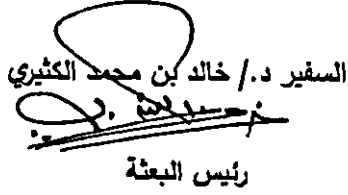 السفير د./ خالد بن محمد الكثيري
رئيس البعثة